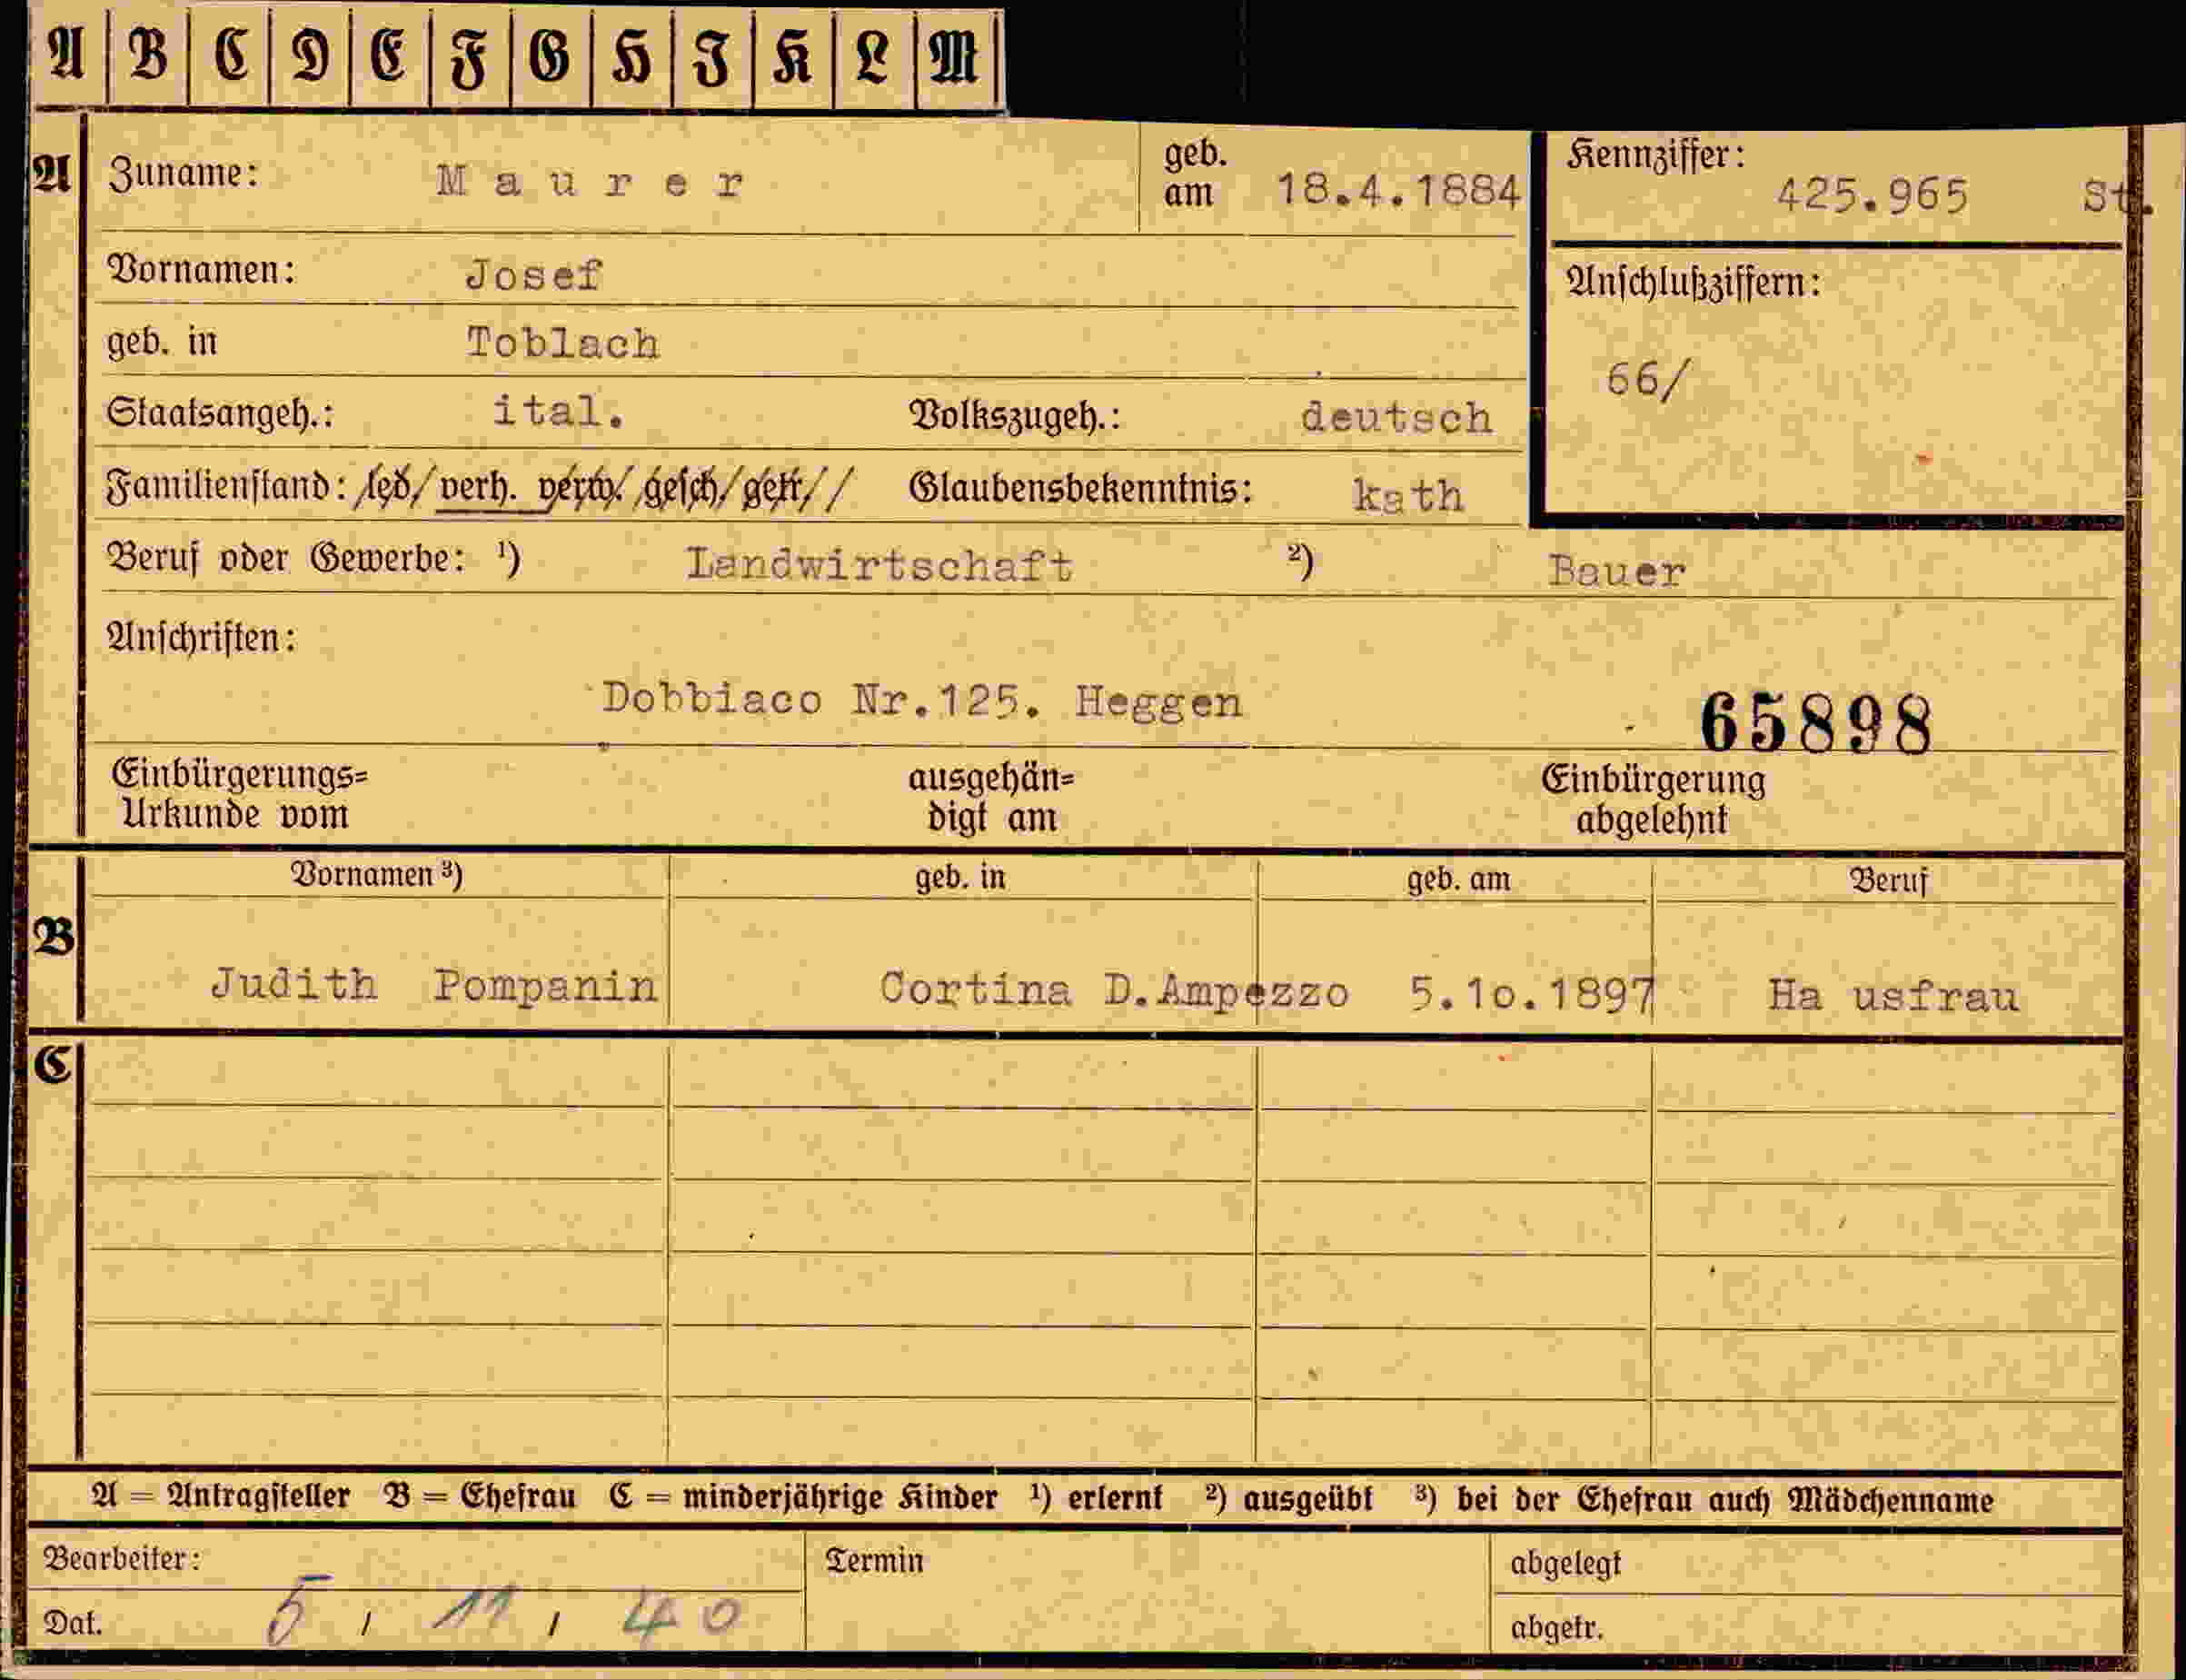 A B C D E F G H I K L M
A Zuname: Maurer geb. am 18.4.1884 Kennziffer: 425.965 St.
Vornamen: Josef Anschlußziffern:
geb. in Toblach 66/
Staatsangeh.: ital. Volkszugeh.: deutsch
Familienstand: led/ verh. verw. gesch/ getr. Glaubensbekenntnis: kath
Beruf oder Gewerbe: ¹) Landwirtschaft ²) Bauer
Anschriften:
Dobbiaco Nr.125. Heggen 65898
Einbürgerungs= ausgehän= Einbürgerung
Urkunde vom digt am abgelehnt
Vornamen ³) geb. in geb. am Beruf
B
Judith Pompanin Cortina D.Ampezzo 5.10.1897 Ha usfrau
C
A = Antragsteller B = Ehefrau C = minderjährige Kinder ¹) erlernt ²) ausgeübt ³) bei der Ehefrau auch Mädchenname
Bearbeiter: Termin abgelegt
Dat. 5 / 11 / 40 abgetr.